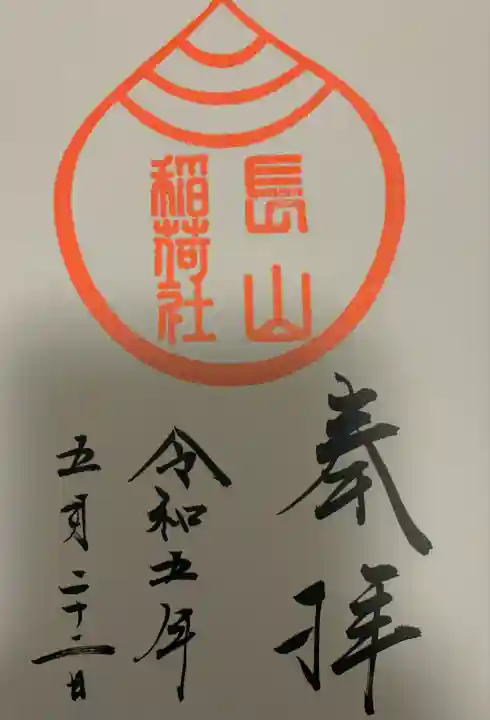 長山
稲荷社
奉拝
令和五年
五月二十二日